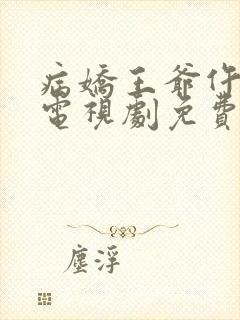 病嬌王爺仵
電視劇免費
塵浮